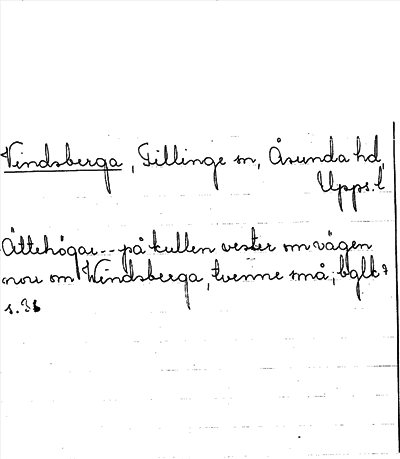 Vindsberga, Tillinge sn, Åsunda hd,
Upps. l
Ättehögar -- på kullen vester om vägen
norr om Windsberga, tvenne små; bglt
s. 36